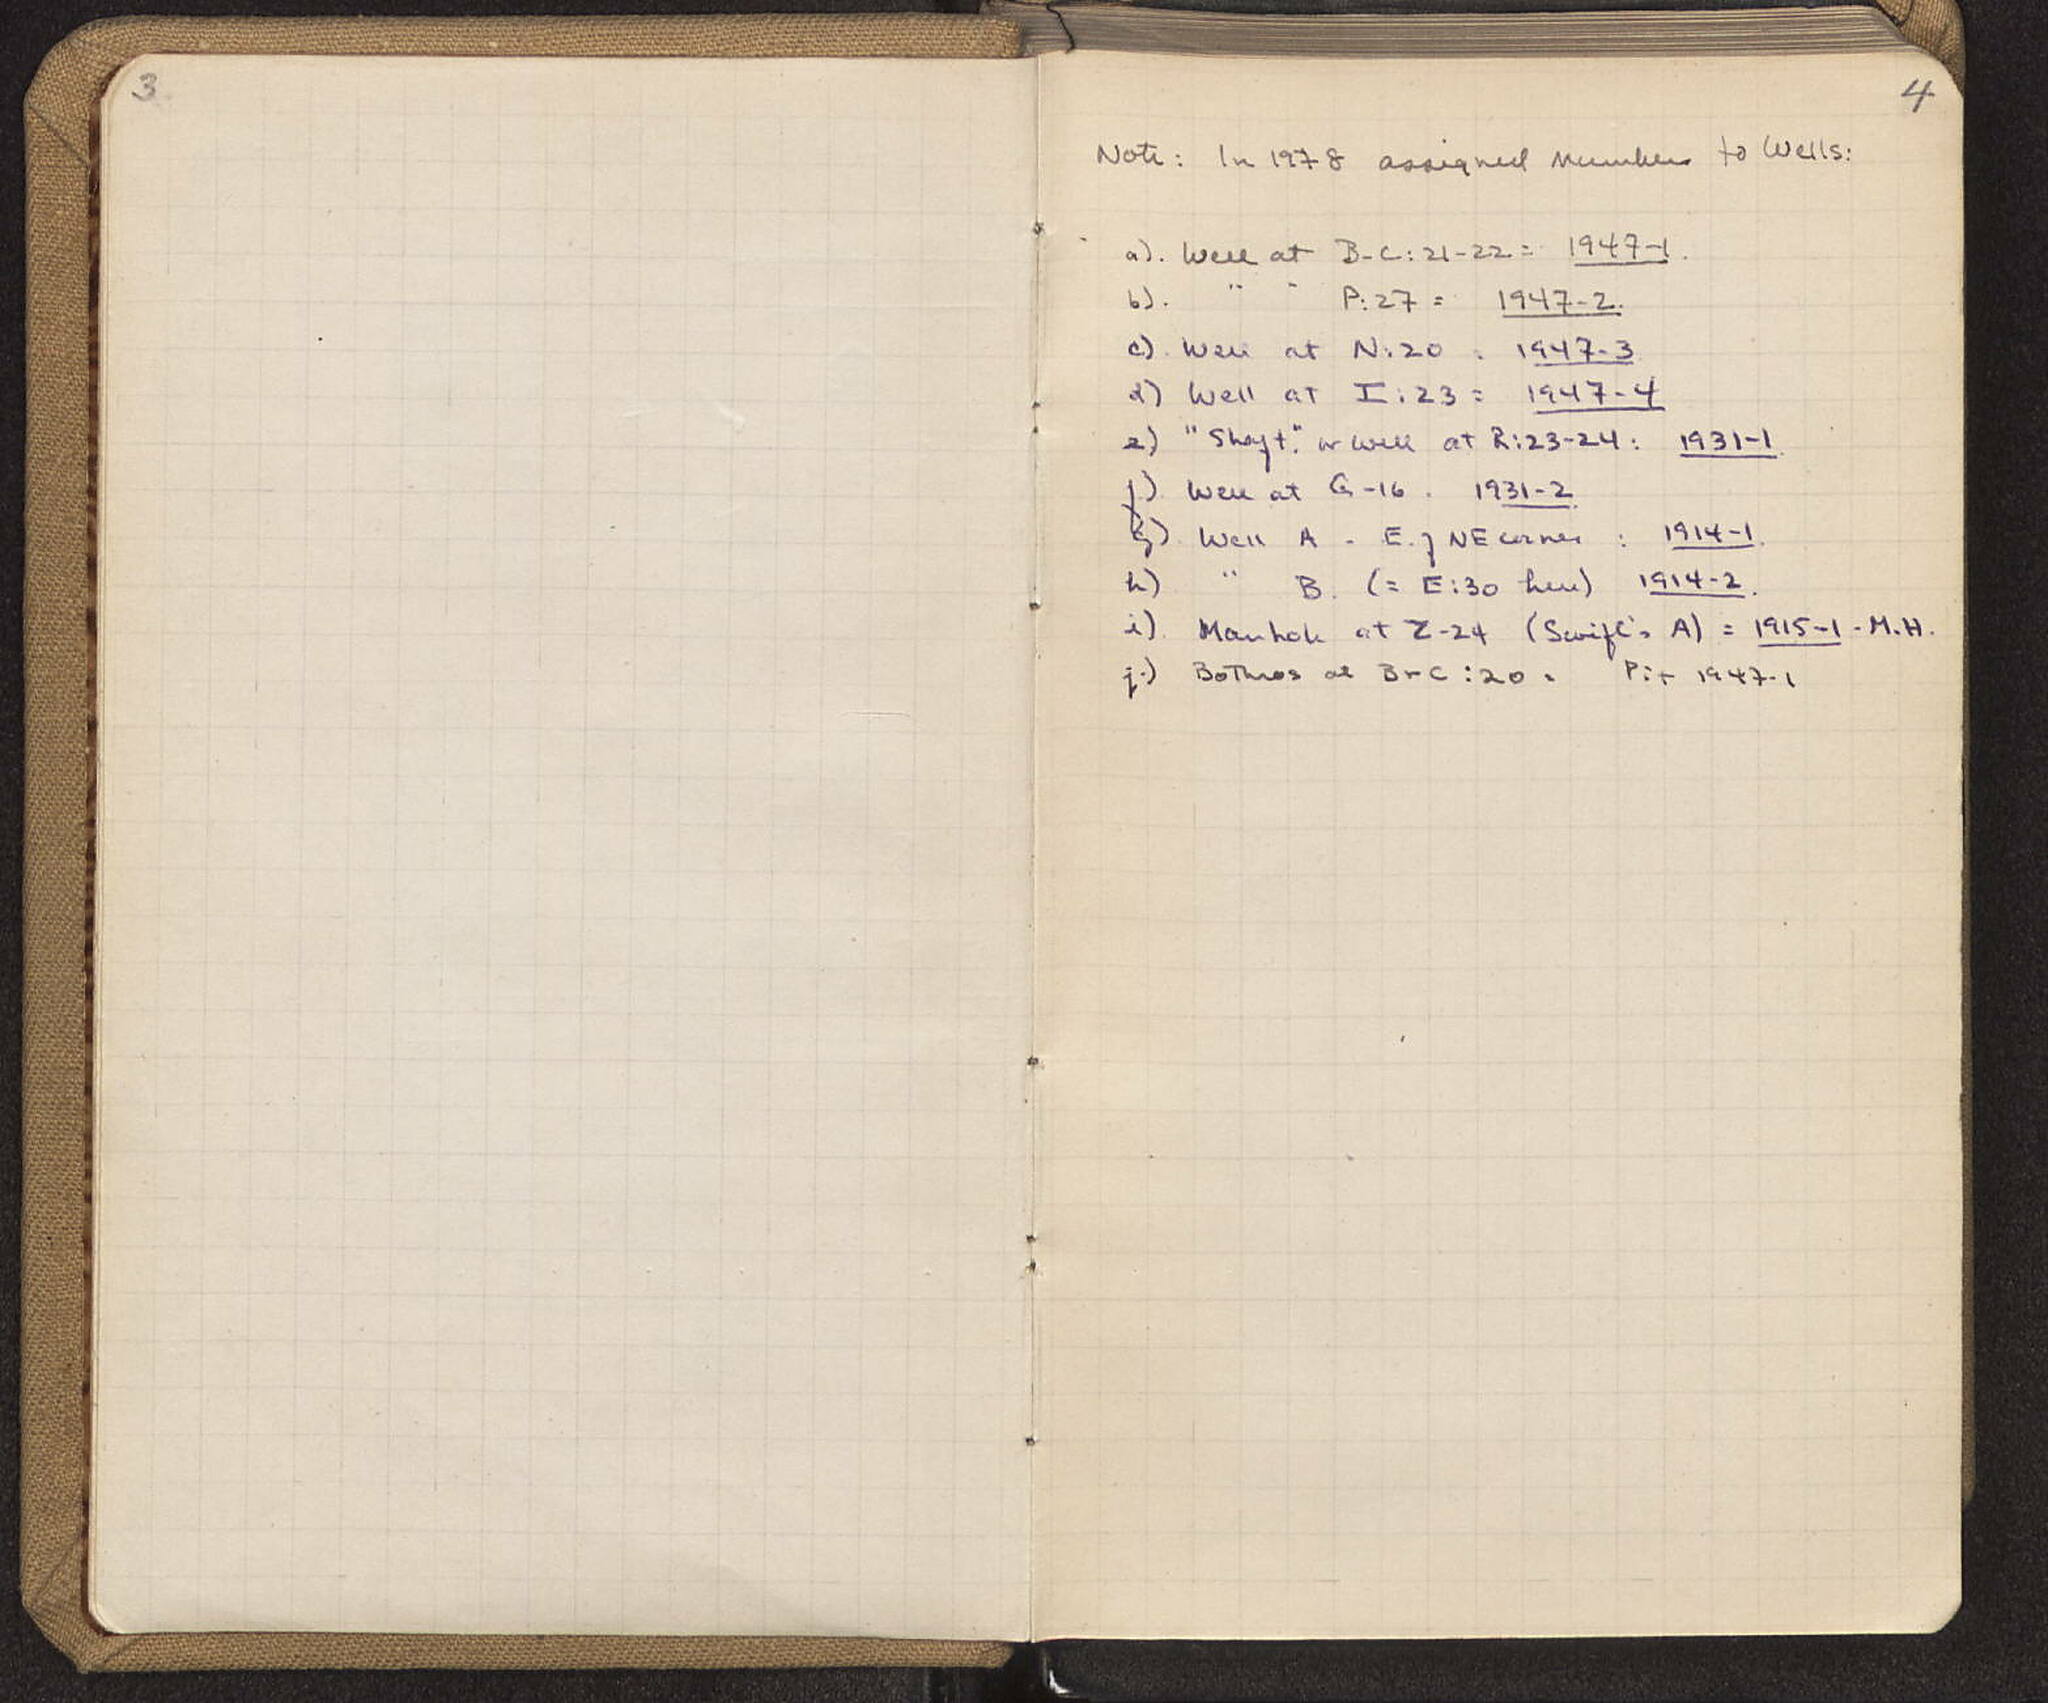 3
4
Note: In 1978 assigned numbers to Wells:
a). Well at B-C:21-22 = 1947-1.
b). " " P:27 = 1947-2.
c) Well at N:20 = 1947-3
d) Well at I:23 = 1947-4
e) "Shaft". or well at R:23-24: 1931-1
f) Well at G-16. 1931-2
g) Well A - E. of NE corner : 1914-1.
h) " B. (= E:30 here) 1914-2.
i) Manhole at Z-24 (Swift's A) = 1915-1-M.H.
j.) Bothros at B-C:20 = Pit 1947-1